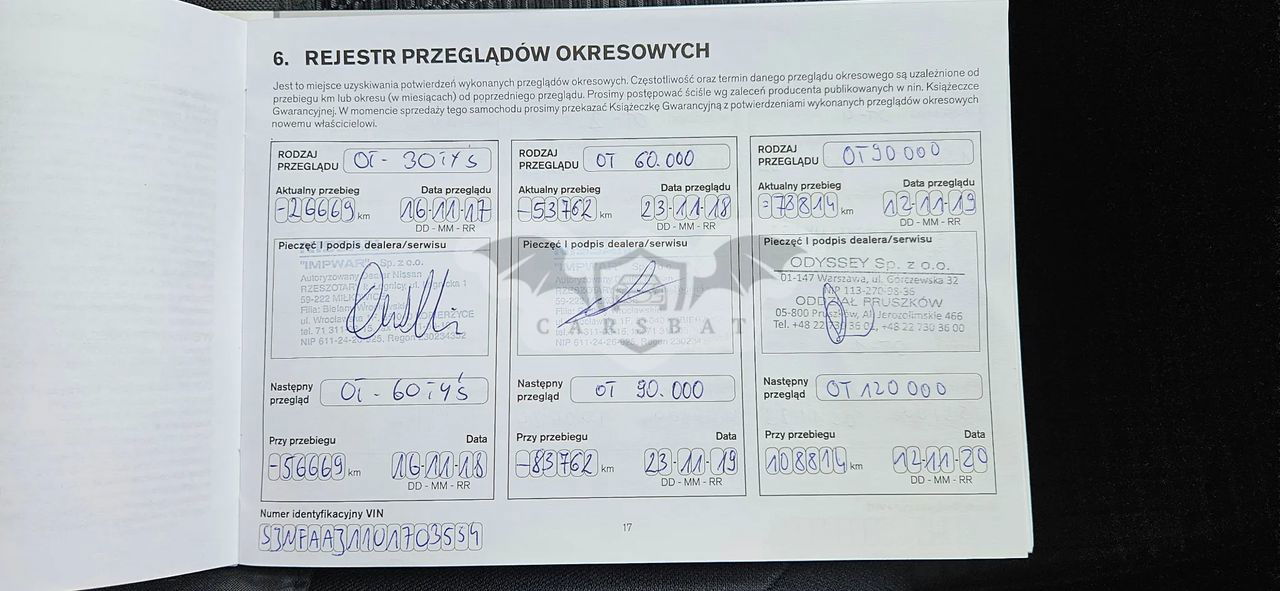 6. REJESTR PRZEGLĄDÓW OKRESOWYCH
Jest to miejsce uzyskiwania potwierdzeń wykonanych przeglądów okresowych. Częstotliwość oraz termin danego przeglądu okresowego są uzależnione od
przebiegu km lub okresu (w miesiącach) od poprzedniego przeglądu. Prosimy postępować ściśle wg zaleceń producenta publikowanych w nin. Książeczce
Gwarancyjnej. W momencie sprzedaży tego samochodu prosimy przekazać Książeczkę Gwarancyjną z potwierdzeniami wykonanych przeglądów okresowych
nowemu właścicielowi.
RODZAJ PRZEGLĄDU OT - 30 TYŚ
Aktualny przebieg Data przeglądu
-26669 km 16-11-17
DD - MM - RR
Pieczęć I podpis dealera/serwisu
"IMPWAR" Sp. z o.o.
Autoryzowany Dealer Nissan
59-222
ul.
tel. 71 311
NIP 611-24-26-625, Regon 230234352
Następny przegląd OT - 60 TYŚ
Przy przebiegu Data
-56669 km 16-11-18
DD - MM - RR
RODZAJ PRZEGLĄDU OT 60.000
Aktualny przebieg Data przeglądu
-53762 km 23-11-18
DD - MM - RR
Pieczęć I podpis dealera/serwisu
"IMPWAR" Sp. z o.o.
Autoryzowany
59-222
NIP 611-24-26-625, Regon
CARSBAT
Następny przegląd OT 90.000
Przy przebiegu Data
-83762 km 23-11-19
DD - MM - RR
RODZAJ PRZEGLĄDU OT 90 000
Aktualny przebieg Data przeglądu
=78814 km 12-11-19
DD - MM - RR
Pieczęć I podpis dealera/serwisu
ODYSSEY Sp. z o.o.
01-147 Warszawa, ul. Górczewska 32
NIP 113-270-98-36
ODDZIAŁ PRUSZKÓW
05-800 Pruszków, Al. Jerozolimskie 466
Tel. +48 22 730 36 00
Następny przegląd OT 120 000
Przy przebiegu Data
108814 km 12-11-20
DD - MM - RR
Numer identyfikacyjny VIN
SJNFAAJ11U1703534
17